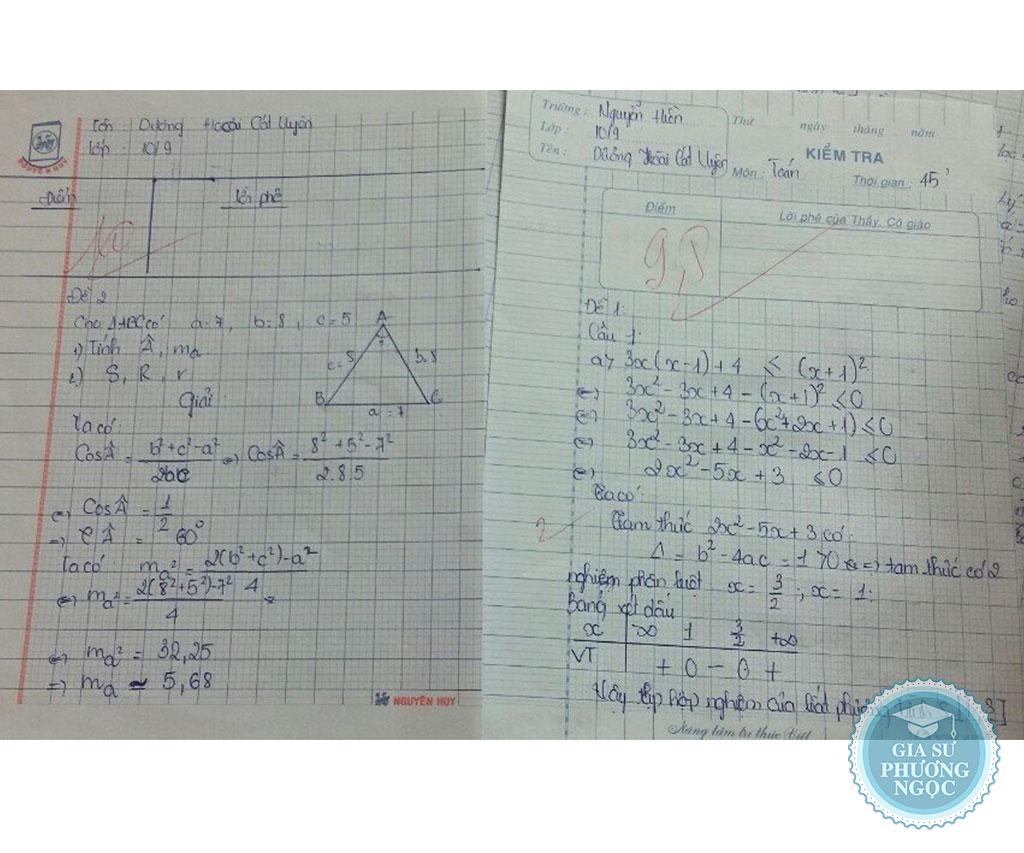 Tên : Dương Hoài Cát Uyên
Lớp : 10/9
NGUYEN HUY
Điểm
Lời phê
10
Đề 2
Cho ΔABC có: a=7, b=8, c=5
1) Tính Â, ma
2) S, R, r
A
c=5
b=8
B
C
a=7
Giải
Ta có:
Cos = b²+c²-a²/2bc => Cos = 8²+5²-7²/2.8.5
<=> Cos = 1/2
=>  = 60°
Ta có: ma² = 2(b²+c²)-a²/4
<=> ma² = 2(8²+5²)-7²/4
<=> ma² = 32,25
=> ma ≃ 5,68
NGUYÊN HUY
Trường : Nguyễn Hiền
Lớp : 10/9
Tên : Dương Hoài Cát Uyên
Thứ ngày tháng năm
KIỂM TRA
Môn : Toán
Thời gian : 45'
Điểm
Lời phê của Thầy, Cô giáo
9,5
Đề 1:
Câu 1:
a> 3x(x-1)+4 ≤ (x+1)²
<=> 3x²-3x+4-(x+1)² ≤0
<=> 3x²-3x+4-(x²+2x+1) ≤0
<=> 3x²-3x+4-x²-2x-1 ≤0
<=> 2x²-5x+3 ≤0
Ta có:
Tam thức 2x²-5x+3 có:
2
Δ = b²-4ac = 1 >0 => tam thức có 2
nghiệm phân biệt x= 3/2 ; x= 1:
Bảng xét dấu
x -∞ 1 3/2 +∞
VT + 0 - 0 +
Vậy tập hợp nghiệm của bất
GIA SƯ
PHƯƠNG
NGỌC